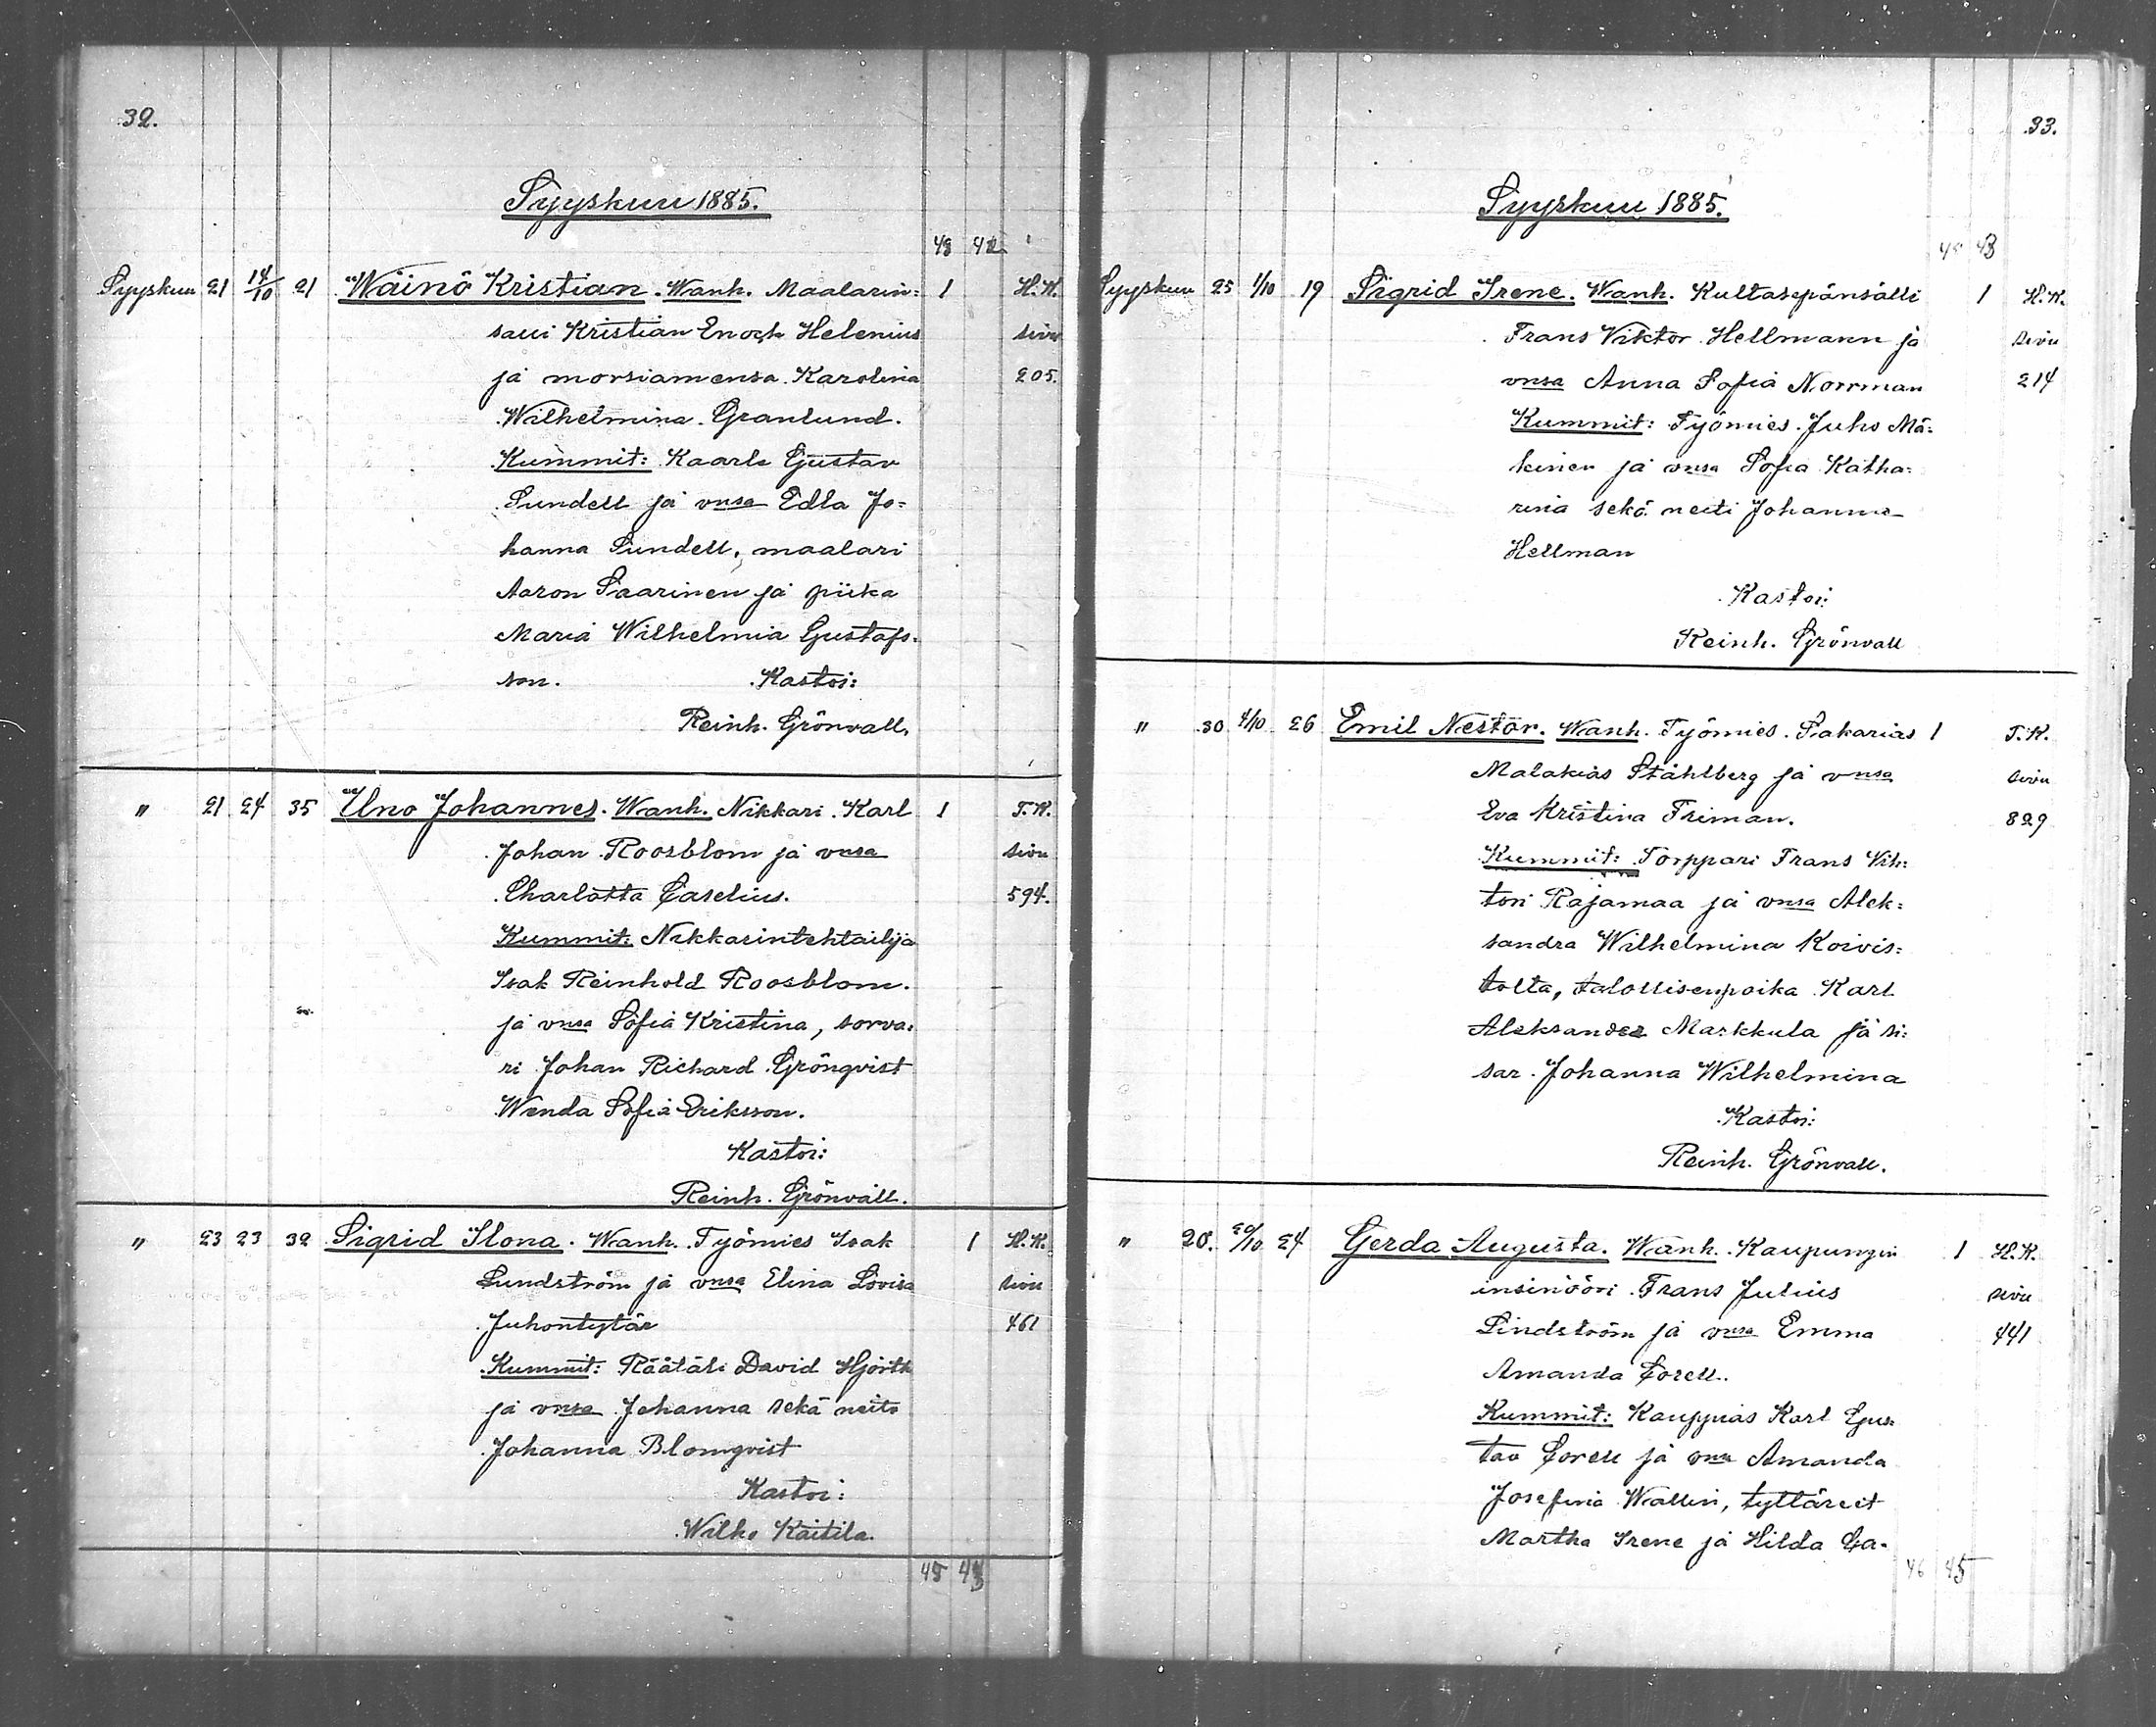 32.
Syyskuu 1885.
48 42
Syyskuu 21 14/10 21 Wäinö Kristian. Wanh. Maalarin= 1 H.K.
salli Kristian Enoch Helenius sivu
ja morsiamensa Karolina 205.
Wilhelmina Granlund.
Kummit: Kaarle Gustav
Sundell ja vnsa Edla Jo=
hanna Sundell, maalari
Aaron Saarinen ja piika
Maria Wilhelmia Gustafs=
son. Kastoi:
Reinh. Grönvall.
" 21 24 35 Uno Johannes. Wanh. Nikkari Karl 1 T.K.
Johan Roosblom ja vnsa sivu
Charlotta Caselius. 594.
Kummit: Nikkarintehtailija
Isak Reinhold Roosblom.
ja vnsa Sofia Kristina, sorva=
ri Johan Richard Grönqvist
Wenda Sofia Eriksson.
Kastoi:
Reinh. Grönvall.
" 23 23 32 Sigrid Ilona. Wanh. Työmies Isak 1 H.K.
Lundström ja vnsa Elina Lovisa sivu
Juhontytär 461
Kummit: Räätäli David Hjorth
ja vnsa Johanna sekä neito
Johanna Blomqvist
Kastoi:
Wilho Käitilä.
45 43
33.
Syyskuu 1885.
45 43
Syyskuu 25 1/10 19 Sigrid Irene. Wanh. Kultasepänsälli 1 H.K.
Frans Viktor Hellmann ja sivu
vnsa Anna Sofia Norrman 214
Kummit: Työmies Juho Mä=
kinen ja vnsa Sofia Katha=
rina sekä neiti Johanna
Hellman
Kastoi:
Reinh. Grönvall
" 30 4/10 26 Emil Nestor. Wanh. Työmies Sakarias 1 T.K.
Malakias Ståhlberg ja vnsa sivu
Eva Kristina Friman. 829
Kummit: Torppari Frans Vih=
tori Rajamaa ja vnsa Alek=
sandra Wilhelmina Koivis=
tolta, talollisenpoika Karl
Aleksander Markkula ja si=
sar Johanna Wilhelmina
Kastoi:
Reinh. Grönvall.
" 20. 20/10 24 Gerda Augusta. Wanh. Kaupungin 1 H.K.
insinööri Frans Julius sivu
Lindström ja vnsa Emma 441
Amanda Corell.
Kummit: Kauppias Karl Gus=
tav Corell ja vnsa Amanda
Josefina Wallin, tyttäreet
Martha Irene ja Hilda Ca=
46 45